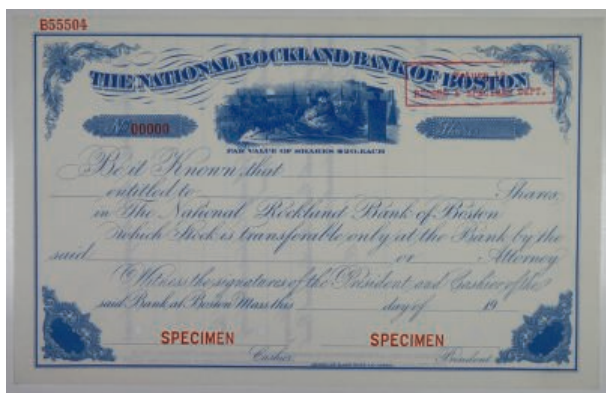 B55504
THE NATIONAL ROCKLAND BANK OF BOSTON
No 00000
Shares
PAR VALUE OF SHARES $20. EACH
Be it Known, that
entitled to Shares
in The National Rockland Bank of Boston
which Stock is transferable only at the Bank by the
said or Attorney
Witness the signatures of the President and Cashier of the
said Bank at Boston Mass this day of 19
SPECIMEN SPECIMEN
Cashier. President